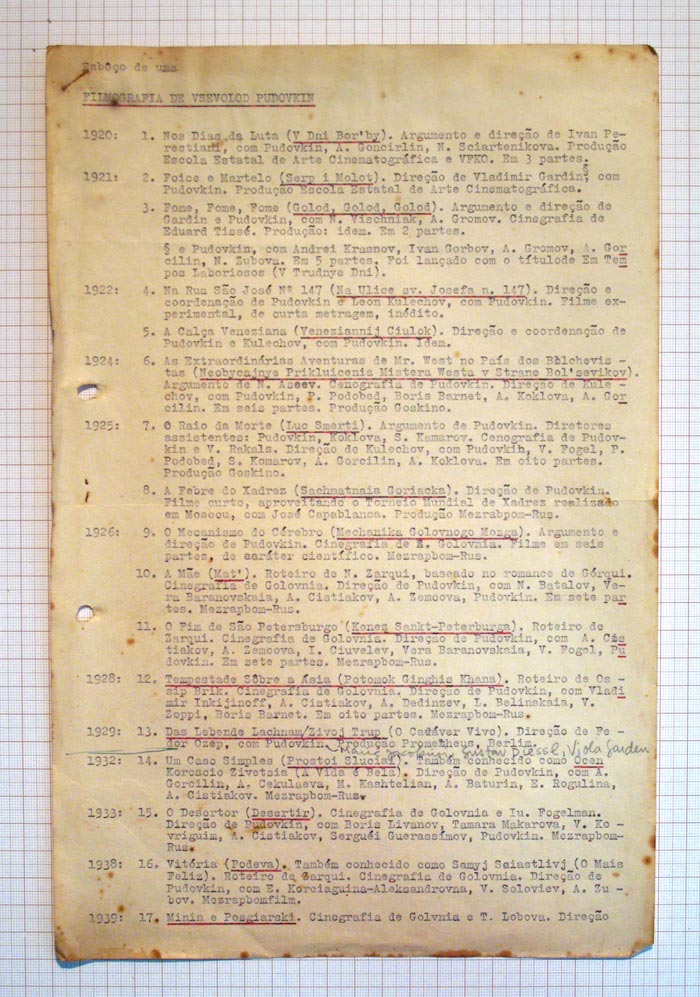 Esboço de uma
FILMOGRAFIA DE VSEVOLOD PUDOVKIN
1920: 1. Nos Dias da Luta (V Dni Bor'by). Argumento e direção de Ivan Pe-
restiani, com Pudovkin, A. Goncirlin, N. Sciartenikova. Produção
Escola Estatal de Arte Cinematográfica e VFKO. Em 3 partes.
1921: 2. Foice e Martelo (Serp i Molot). Direção de Vladimir Gardin§ com
Pudovkin. Produção Escola Estatal de Arte Cinematográfica.
3. Fome, Fome, Fome (Golod, Golod, Golod). Argumento e direção de
Gardin e Pudovkin, com N. Vischniak, A. Gromov. Cinegrafia de
Eduard Tissé. Produção: idem. Em 2 partes.
§ e Pudovkin, com Andrei Krasnov, Ivan Gorbov, A. Gromov, A. Gor
cilin, N. Zubova. Em 5 partes. Foi lançado com o títulode Em Tem
pos Laboriosos (V Trudnye Dni).
1922: 4. Na Rua São José Nº 147 (Na Ulice sv. Josefa n. 147). Direção e
coordenação de Pudovkin e Leon Kulechov, com Pudovkin. Filme ex-
perimental, de curta metragem, inédito.
5. A Calça Veneziana (Veneziannij Ciulok). Direção e coordenação de
Pudovkin e Kulechov, com Pudovkin. Idem.
1924: 6. As Extraordinárias Aventuras de Mr. West no País dos Bòlchevis -
tas (Neobycajnye Prikluicenia Mistera Westa v Strane Bol'sevikov).
Argumento de N. Aseev. Cenografia de Pudovkin. Direção de Kule -
chov, com Pudovkin, P. Podobed, Boris Barnet, A. Koklova, A. Gor
cilin. Em seis partes. Produção Goskino.
1925: 7. O Raio da Morte (Luc Smerti). Argumento de Pudovkin. Diretores
assistentes: Pudovkin, Koklova, S. Kamarov. Cenografia de Pudov-
kin e V. Rakals. Direção de Kulechov, com Pudovkin, V. Fogel, P.
Podobed, S. Komarov, A. Gorcilin, A. Koklova. Em oito partes.
Produção Goskino.
8. A Febre do Xadrez (Sachmatnaia Goriacka). Direção de Pudovkin.
Filme curto, aproveitando o Torneio Mundial de Xadrez realizado
em Moscou, com José Capablanca. Produção Mezrabpom-Rus.
1926: 9. O Mecanismo do Cérebro (Mechanika Golovnogo Mozga). Argumento e
direção de Pudovkin. Cinegrafia de A. Golovnia. Filme em seis
partes, de caráter científico. Mezrapbom-Rus.
10. A Mãe (Mat'). Roteiro de N. Zarqui, baseado no romance de Górqui.
Cinegrafia de Golovnia. Direção de Pudovkin, com N. Batalov, Ve-
ra Baranovskaia, A. Cistiakov, A. Zemcova, Pudovkin. Em sete par
tes. Mezrapbom-Rus.
11. O Fim de São Petersburgo (Konez Sankt-Peterburga). Roteiro de
Zarqui. Cinegrafia de Golovnia. Direção de Pudovkin, com A. Cis
tiakov, A. Zemcova, I. Ciuvelev, Vera Baranovskaia, V. Fogel, Pu
dovkin. Em sete partes. Mezrapbom-Rus.
1928: 12. Tempestade Sôbre a Ásia (Potomok Ginghis Khana). Roteiro de Os-
sip Brik. Cinegrafia de Golovnia. Direção de Pudovkin, com Vladi
mir Inkijinoff, A. Cistiakov, A. Dedinzev, L. Belinskaia, V.
Zoppi, Boris Barnet. Em oito partes. Mezrabpom-Rus.
1929: 13. Das Lebende Lachnam/Zivoj Trup (O Cadáver Vivo). Direção de Fe -
dor Ozep, com Pudovkin. Produção Prometheus, Berlim.
Maria Jacobini, Gustav Diessl, Viola Garden
1932: 14. Um Caso Simples (Prostoi Sluciai). Também conhecido como Ocen
Koroscio Zivetsia (A Vida é Bela). Direção de Pudovkin, com A.
Gorcilin, A. Cekulaeva, M. Kashtelian, A. Baturin, E. Rogulina,
A. Cistiakov. Mezrapbom-Rus.
1933: 15. O Desertor (Desertir). Cinegrafia de Golovnia e Iu. Fogelman.
Direção de Pudovkin, com Boris Livanov, Tamara Makarova, V. Ko -
vriguim, A. Cistiakov, Serguéi Guerassimov, Pudovkin. Mezrapbom-
Rus.
1938: 16. Vitória (Podeva). Também conhecido como Samyj Sciastlivj (O Mais
Feliz). Roteiro de Zarqui. Cinegrafia de Golovnia. Direção de
Pudovkin, com E. Korciaguina-Aleksandrovna, V. Soloviev, A. Zu -
bov. Mezrapbomfilm.
1939: 17. Minin e Posgiarski. Cinegrafia de Golvnia e T. Lobova. Direção